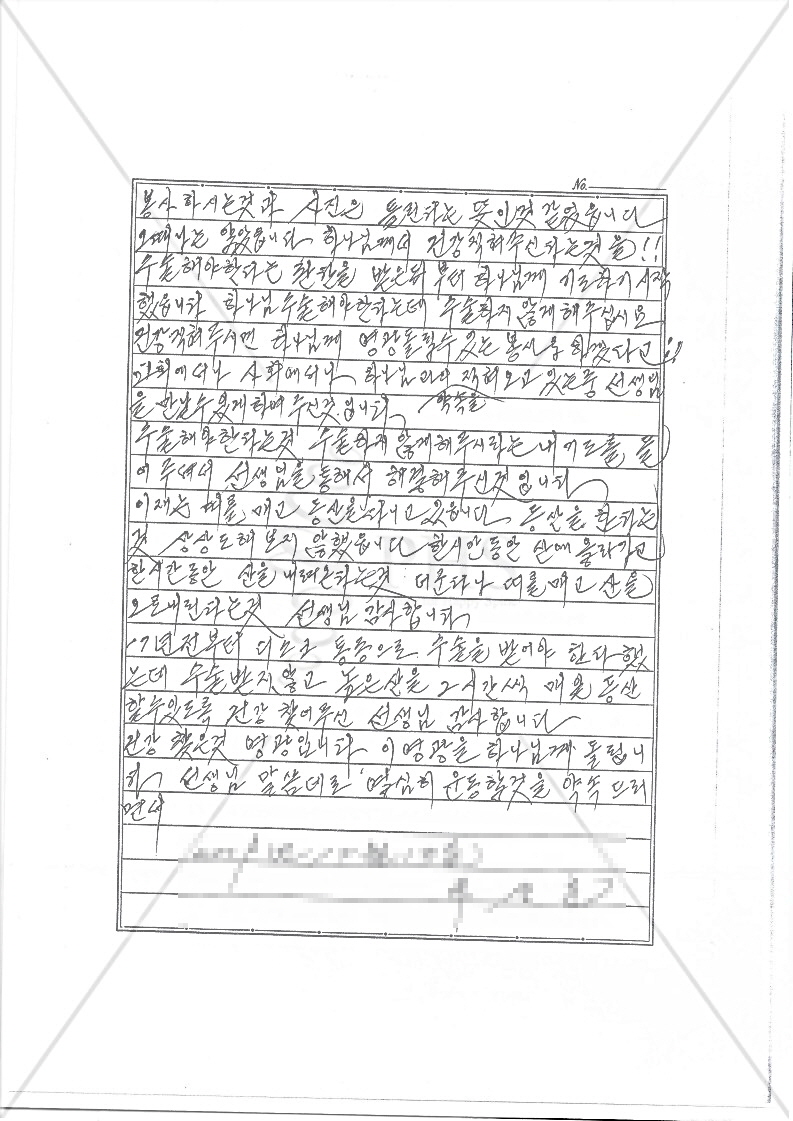 No.
봉사하시는것과 사진은 통한다는 뜻인것 같었읍니다
이때 나는 알았읍니다 하나님께서 건강직혀주신다는것을!!
수술해야한다는 환판을 받은뒤 부터 하나님께 기도하기 시작
했읍니다 하나님 수술해야한다는데 수술하지 않게 해주십시요
건강직혀주시면 하나님께 영광돌릴수 있는 봉사을 하겠다고!!
교회에서나 사회에서나 하나님과의 약속을 직혀오고 있는중 선생님
을 만날수 있게하여 주신것입니다
수술해야한다는것 수술하지 않게해주시라는 내 기도를 들
어주셔서 선생님을 통해서 해결해주신것입니다
이재는 띠를 매고 등산을 다니고 있읍니다 등산을 한다는
것 상상도해 보지 않했읍니다 한시간동안 산에 올라가고
한시간동안 산을 내려온다는것 더군다나 띠를 매고 산을
오르내린다는것 선생님 감사합니다
17년전부터 디스크 통증으로 수술을 받어야 한다했
는데 수술받지않고 높은산을 2시간씩 매일 등산
할수있도록 건강 찾어주신 선생님 감사합니다
건강 찾은것 영광입니다 이 영광을 하나님께 돌립니
다 선생님 말씀데로 열심히 운동할것을 약속 드리
면서